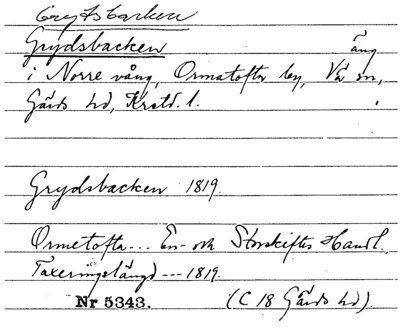 Grydsbacken
Grydsbacken äng
i Norre vång, Ormatofta by, Vä sn,
Gärds hd, Kristi. l.
Grydsbacken 1819.
Ormetofta --- En- och Storskiftes Handl.
Taxeringslängd --- 1819.
Nr 5343. (C 18 Gärds hd).